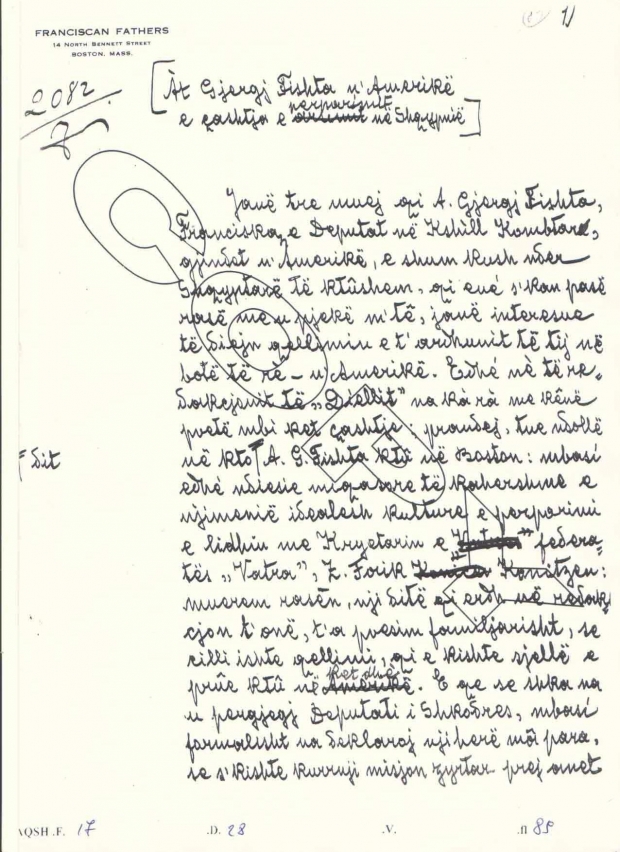 1)
FRANCISCAN FATHERS
14 NORTH BENNETT STREET
BOSTON, MASS.
2082
[At Gjergj Fishta n'Amerikë
perparimit
e çashtja e në Shqypnië]
Janë tre muej qi A. Gjergj Fishta,
Françiskan, e Deputat në Kshill Kombtar,
gjindet n'Amerikë, e shum kush nder
Shqyptarë të ktûshem, qi ené s'kan pasë
rasë me u pjekë m'të, janë interesue
të diejn qellimin e t'ardhunit të tij në
botë të rê – n'Amerikë. Edhé nè të re-
dakcjonit të „Diellit" na ka râ me kênë
pvetë mbi ket çashtje; prandej, tue ndollë
në kto A. G. Fishta ktû në Boston: mbasi
dit
edhé ndiesie miqasore të kahershme e
njimenië idealesh kulture e perparimi
e lidhin me Kryetarin e federa-
tës „Vatra", Z. Faik Konitzen:
muerem rasën, nji ditë qi erdh në redak
cjon t'onë, t'a pvesim familjarisht, se
cilli ishte qellimi, qi e kishte sjellë e
ket dhé
prûe ktû në Amerikë. E qe se shka na
u pergjegj Deputati i Shkodres, mbasi
formalisht na deklaroj njiherë mâ para,
se s'kishte kurrnji misjon zyrtar prej anet
AQSH .F. 17 .D. 28 .V. .fl 89
COPY